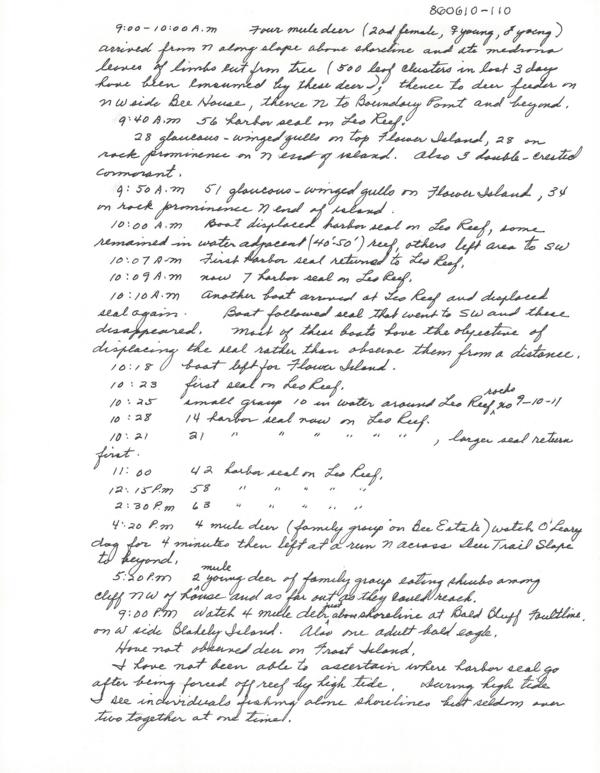 860610-110
9:00-10:00 A.m Four mule deer (2ad female, ♀ young, ♂ young)
arrived from N along slope above shoreline and ate madrona
leaves of limbs cut frm tree (500 leaf clusters in last 3 days
have been consumed by these deer), thence to deer feeder on
NW side Bee House, thence N to Boundary Point and beyond.
9:40 A.m 56 harbor seal on Leo Reef.
28 glaucous-winged gulls on top Flower Island, 28 on
rock prominence on N end of island. Also 3 double-crested
cormorant.
9:50 A.m 51 glaucous-winged gulls on Flower Island, 34
on rock prominence N end of island.
10:00 A.m Boat displaced harbor seal on Leo Reef, some
remained in water adjacent (40'-50') reef, others left area to SW
10:07 A.m First harbor seal returned to Leo Reef.
10:09 A.m now 7 harbor seal on Leo Reef.
10:10 A.m Another boat arrived at Leo Reef and displaced
seal again. Boat followed seal that went to SW and these
disappeared. Most of these boats have the objective of
displacing the seal rather than observe them from a distance.
10:18 boat left for Flower Island.
10:23 first seal on Leo Reef.
10:25 small group 10 in water around Leo Reef, rocks no 9-10-11
10:28 14 harbor seal now on Leo Reef.
10:21 21 " " " " " " , larger seal return
first.
11:00 42 harbor seal on Leo Reef.
12:15 P.m 58 " " " " "
2:30 P.m 63 " " " " "
4:20 P.m 4 mule deer (family group on Bee Estate) watch O'Leary
dog for 4 minutes then left at a run N across Deer Trail Slope
to beyond.
5:20 P.m 2 young mule deer of family group eating shrubs among
cliff NW of house and as far out as they could reach.
9:00 P.m Watch 4 mule deer just above shoreline at Bald Bluff Faultline,
on W side Blakely Island. Also one adult bald eagle.
Have not observed deer on Frost Island.
I have not been able to ascertain where harbor seal go
after being forced off reef by high tide. During high tide
I see individuals fishing alone shorelines but seldom over
two together at one time.